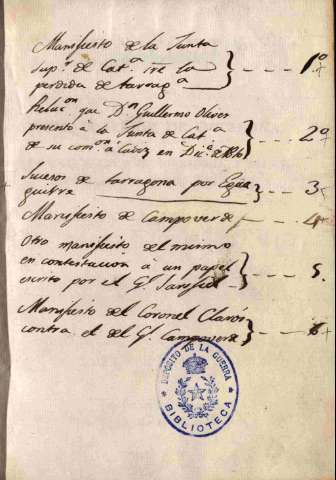 Manifiesto de la Junta
sup.r de Cat.a sre la } --- 1º
perdida de tarrag.a
Relac.on que D.n Guillermo Oliver
presentó à la Junta de Cat.a } --- 2º
de su com.on à Cadiz en Dic.e de 1810
Sucesos de tarragona por Egua
guirre } --- 3
Manifiesto de Campoverde } --- 4
Otro manifiesto del mismo
en contestacion à un papel } --- 5.
escrito por el G.l Sarsfiel
Manifiesto del Coronel Claros
contra el del G.l Campoverde } --- 6
DEPOSITO DE LA GUERRA
BIBLIOTECA